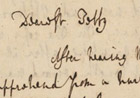 Dearest Patty
After hearing
apprehend from a